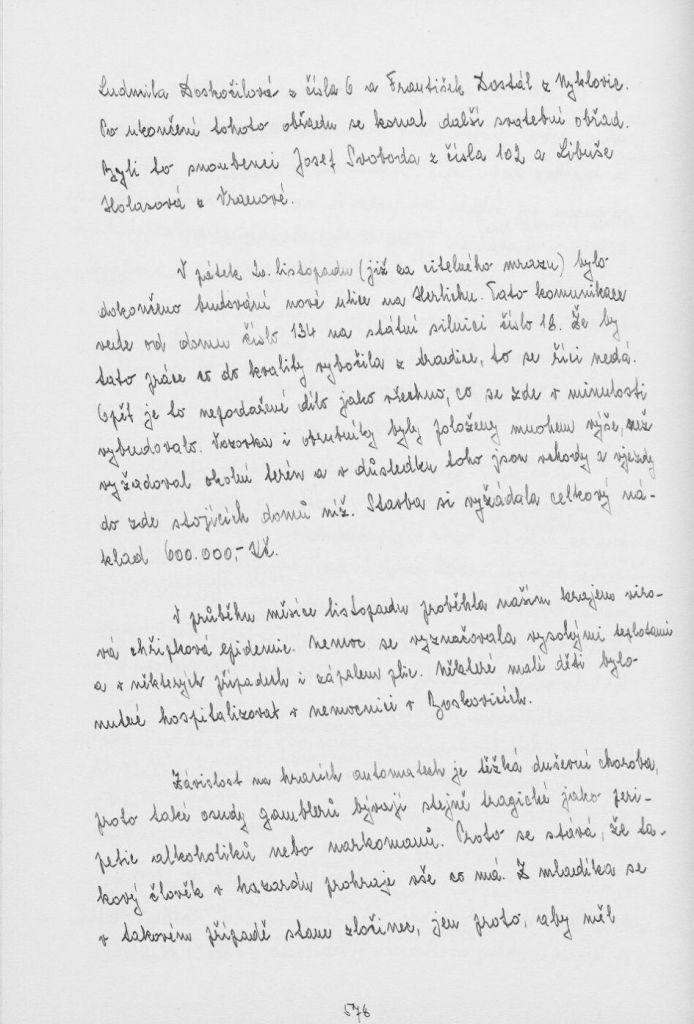 Ludmila Doskočilová z čísla 6 a František Dostál z Nyklovic.
Po ukončení tohoto obřadu se konal další svatební obřad.
Byli to snoubenci Josef Svoboda z čísla 102 a Libuše
Holasová z Vranové.
V pátek 20. listopadu (již za citelného mrazu) bylo
dokončeno budování nové ulice na Herlichu. Tato komunikace
vede od domu číslo 134 na státní silnici číslo 18. Že by
tato práce co do kvality vybočila z tradice, to se říci nedá.
Opět je to nepodařené dílo jako všechno, co se zde v minulosti
vybudovalo. Vozovka i obrubníky byly položeny mnohem výše, než
vyžadoval okolní terén a v důsledku toho jsou vchody a vjezdy
do zde stojících domů níž. Stavba si vyžádala celkový ná-
klad 600.000,- Kč.
V průběhu měsíce listopadu proběhla naším krajem viro-
vá chřipková epidemie. Nemoc se vyznačovala vysokými teplotami
a v některých případech i zápalem plic. Některé malé děti bylo
nutné hospitalizovat v nemocnici v Boskovicích.
Závislost na hracích automatech je těžká duševní choroba,
proto také osudy gamblerů bývají stejně tragické jako peri-
petie alkoholiků nebo narkomanů. Proto se stává, že ta-
kový člověk v hazardu prohraje vše co má. Z mladíka se
v takovém případě stane zločinec, jen proto, aby měl
578